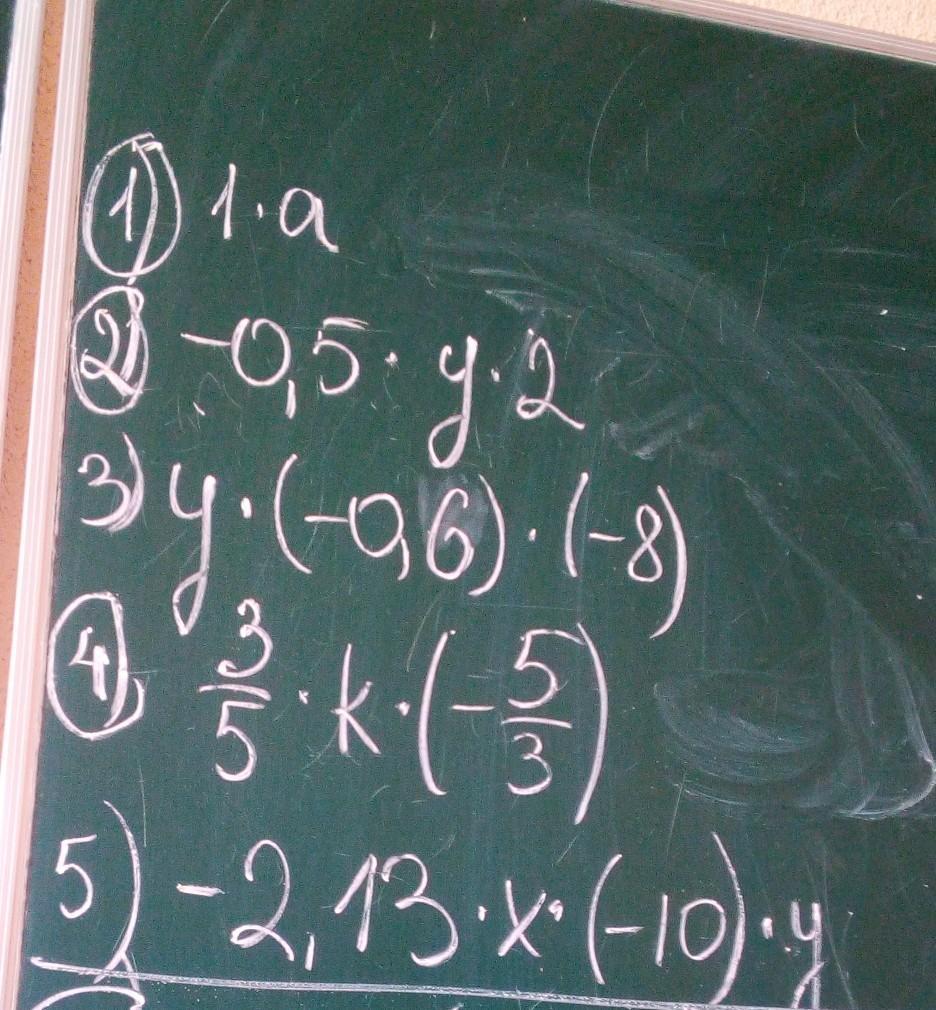 1) 1·a
2) -0,5·y·2
3) y·(-0,6)·(-8)
4) 3/5·k·(-5/3)
5) -2,13·x·(-10)·y